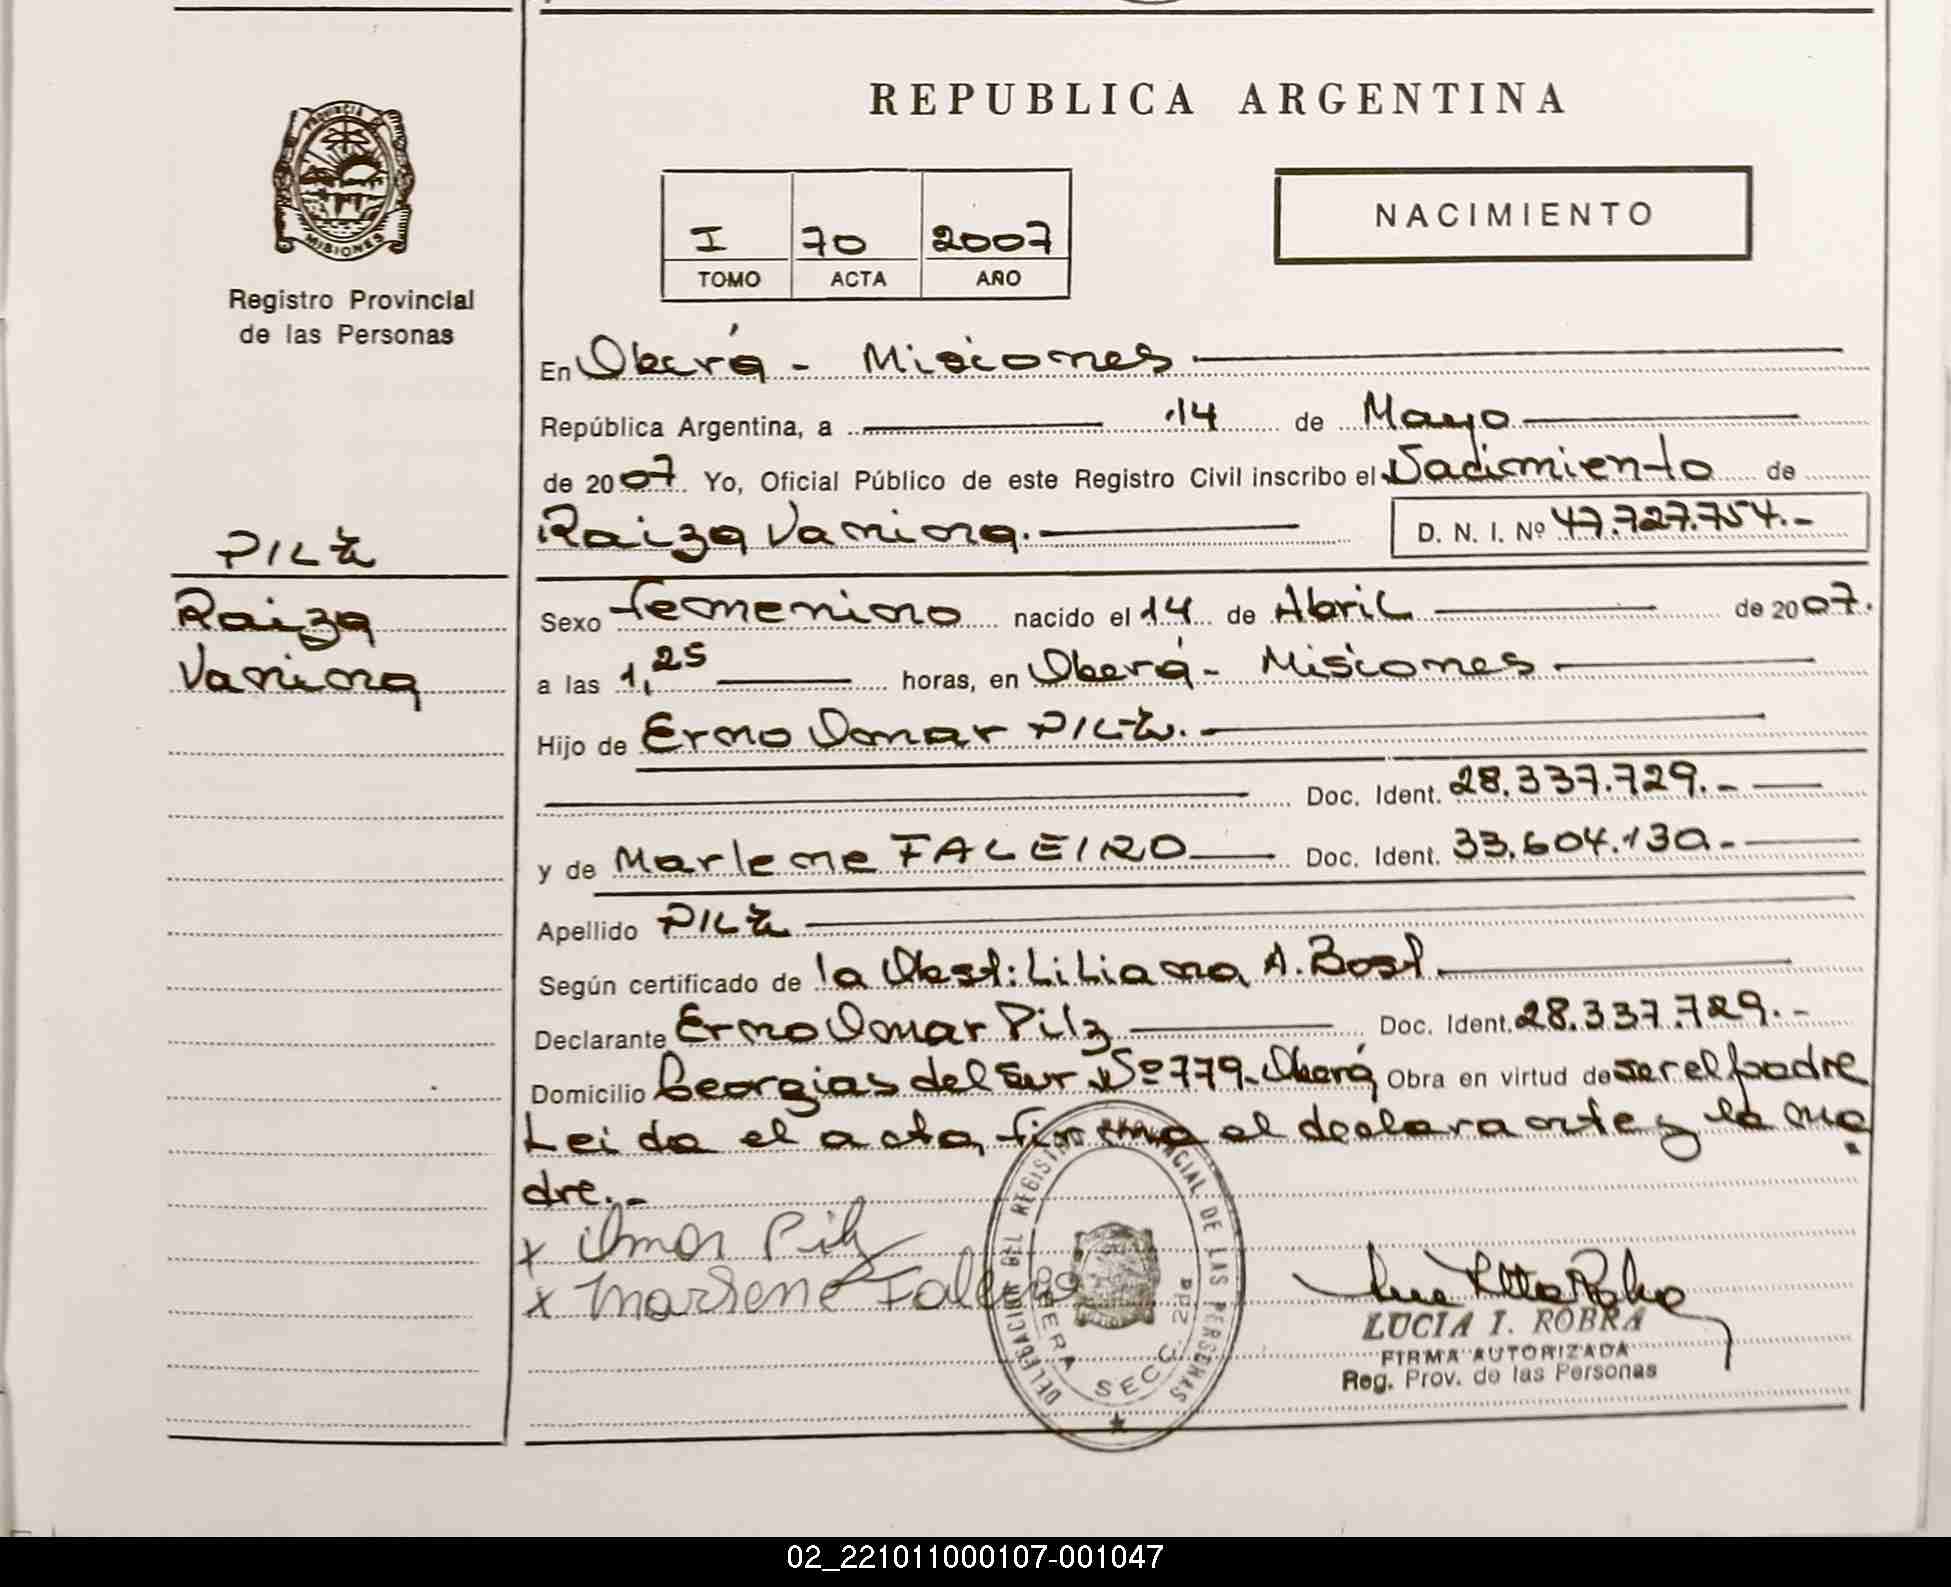 REPUBLICA ARGENTINA
PROVINCIA DE
MISIONES
Registro Provincial
de las Personas
I 70 2007
TOMO ACTA AÑO
NACIMIENTO
En Oberá - Misiones
República Argentina, a 14 de Mayo
de 2007 Yo, Oficial Público de este Registro Civil inscribo el Nacimiento de
Raiza Vanina. D. N. I. Nº 47.727.754.-
PILZ
Raiza
Vanina
Sexo femenino nacido el 14 de Abril de 2007.
a las 1,25 horas, en Oberá - Misiones
Hijo de Erno Omar PILZ.
Doc. Ident. 28.337.729.-
y de Marlene FALEIRO Doc. Ident. 33.604.130.-
Apellido PILZ
Según certificado de la Obst: Liliana A. Bost.
Declarante Erno Omar Pilz Doc. Ident. 28.337.729.-
Domicilio Georgias del Sur Nº 779. Oberá Obra en virtud de ser el padre
Leida el acta, firma el declarante y la ma
dre.-
x Omar Pilz
x Marlene Faleiro
DELEGACION DEL REGISTRO PROVINCIAL DE LAS PERSONAS
OBERA SECC. 2da
LUCIA I. ROBRA
FIRMA AUTORIZADA
Reg. Prov. de las Personas
02_221011000107-001047